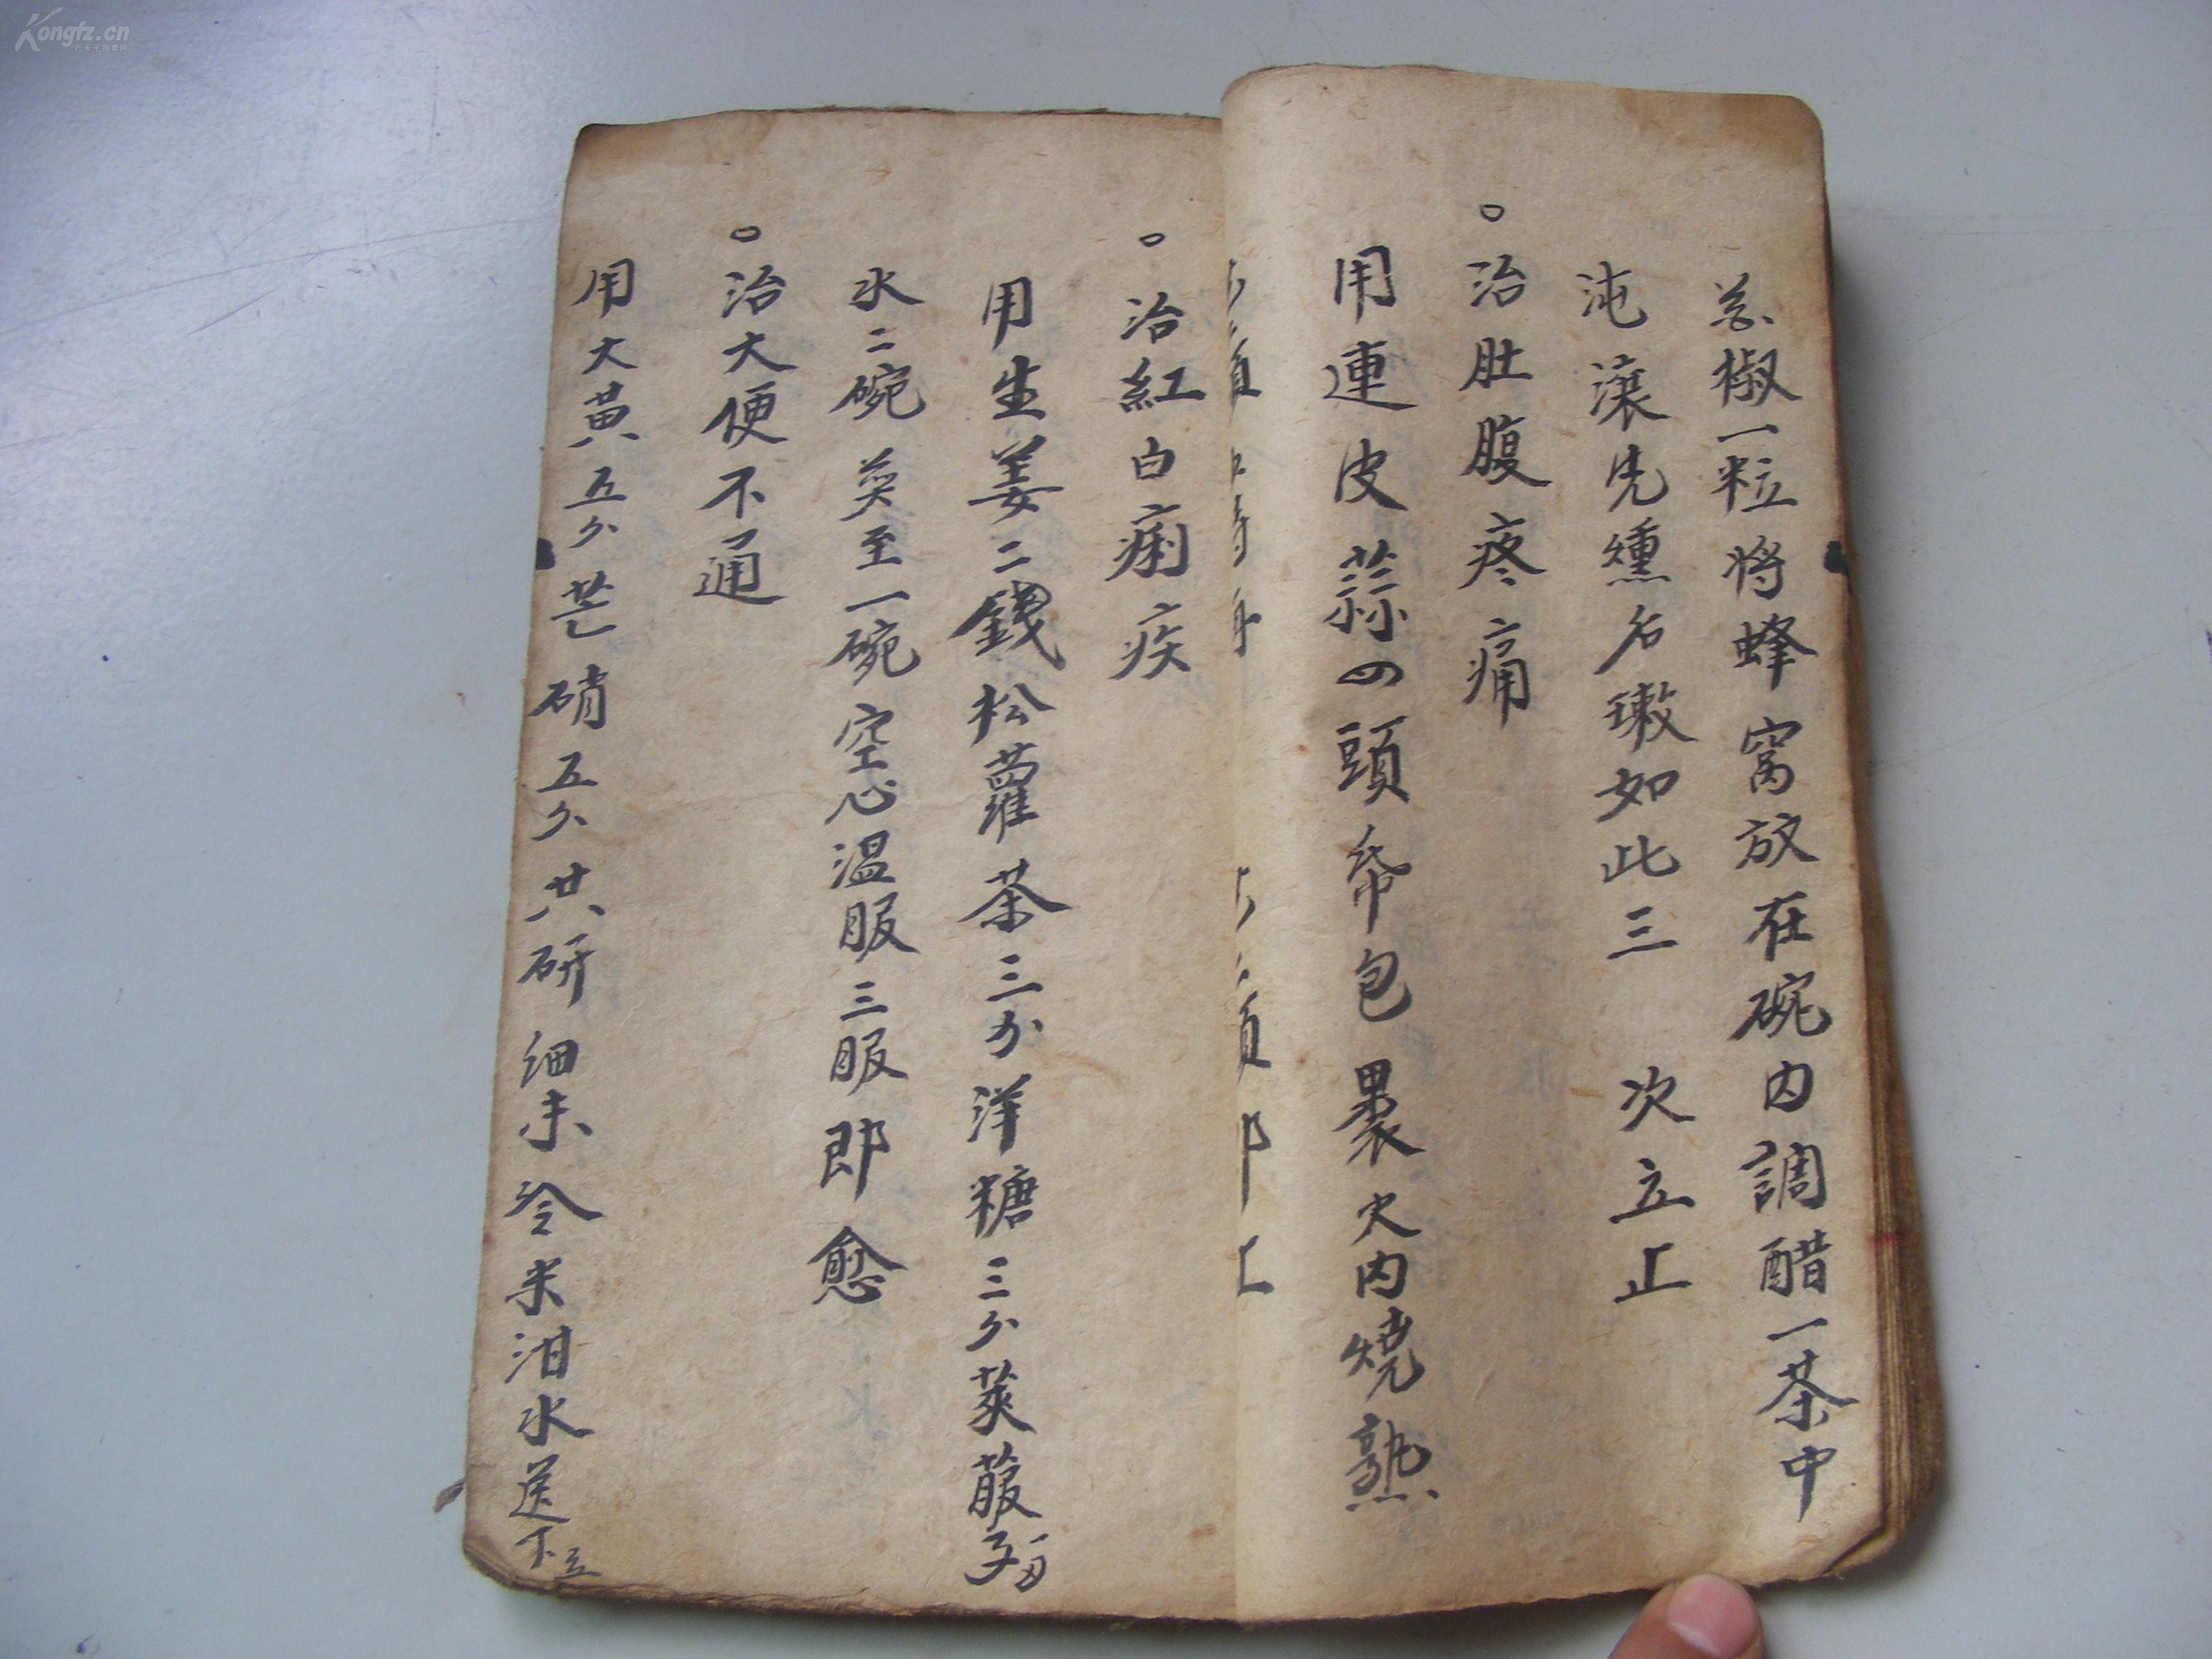 椒一粒將蜂窩放在碗內調醋一茶中
滾先燻名漱如此三次立止
○治肚腹疼痛
用連皮蒜四頭帋包裹火內燒熟
○治紅白痢疾
用生姜二錢松蘿茶三分洋糖三分萊菔子
水二碗煎至一碗空心温服三服即愈
○治大便不通
用大黃五分芒硝五分共研细末冷米泔水送下立
Kongfz.cn